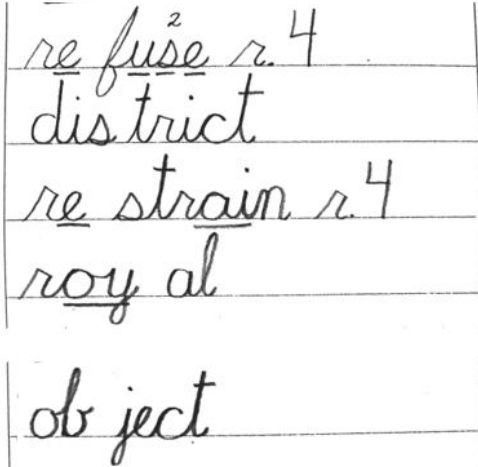 re fuse r. 4
2
dis trict
re strain r. 4
roy al
ob ject